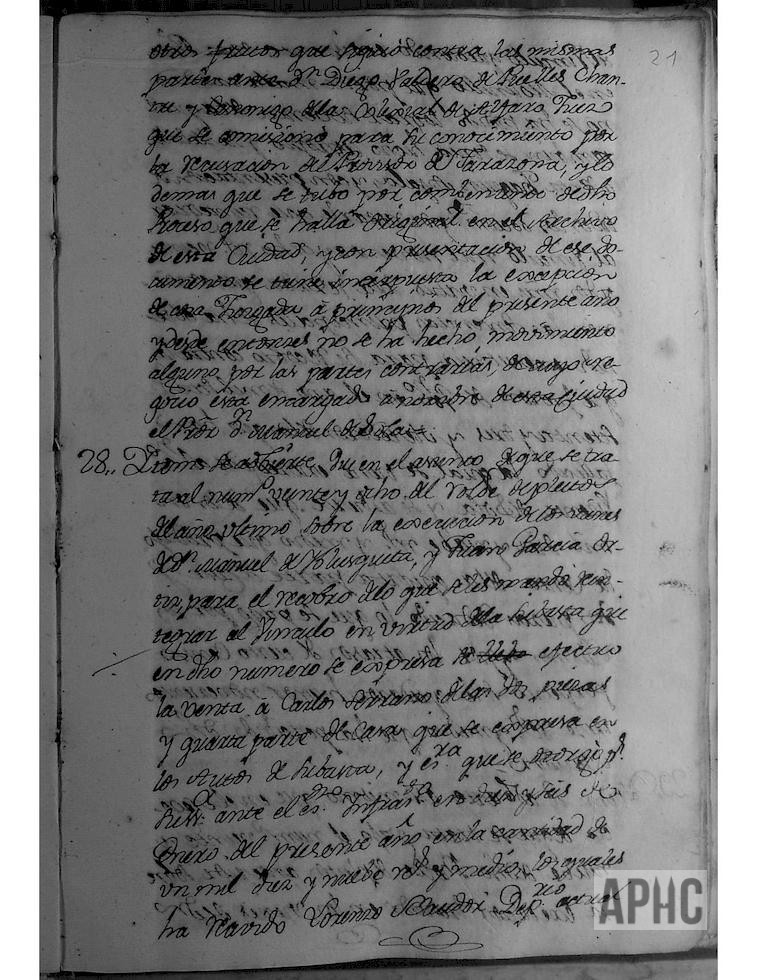 21
otros frutos que siguió contra las mismas
partes ante Dn. Diego Valdero de Puelles Chan-
tre y Canonigo de la Colegial de Alfaro Juez
que se comisionó para su conocimiento por
la recusacion del Provisor de Tarazona, y lo
demas que se tubo por combeniente de dho
Proceso que se halla original en el Archivo
de esta Ciudad, y con presentacion de ese do-
cumento se tiene interpuesta la excepcion
de cosa Juzgada á principios del presente año
y desde entonces no se ha hecho movimiento
alguno por las partes contrarias, de cuyo ne-
gocio está encargado a nombre de esta Ciudad
el Prôr Dn. Manuel de
28.. Item se advierte que en el asunto de que se tra-
ta al numo. veinte y ocho del Rolde de pleitos
del año ultimo sobre la execucion de los vienes
de Dn. Manuel de y Juan Garcia Or-
tiz, para el recobro de lo que se les mandó rein-
tegrar al Vinculo en virtud de la subasta que
en dho numero se expresa se efectuó
la venta á Carlos Serrano de las dos piezas
y quarta parte de Casa que se expresa en
los Autos de Subasta, y esra. que se otorgó pr.
ante el esno. Infrascto. en diez y seis de
Enero del presente año en la cantidad de
un mil diez y nuebe rs. y medio, los quales
ha recivido Lorenzo Deprio. actual
APHC